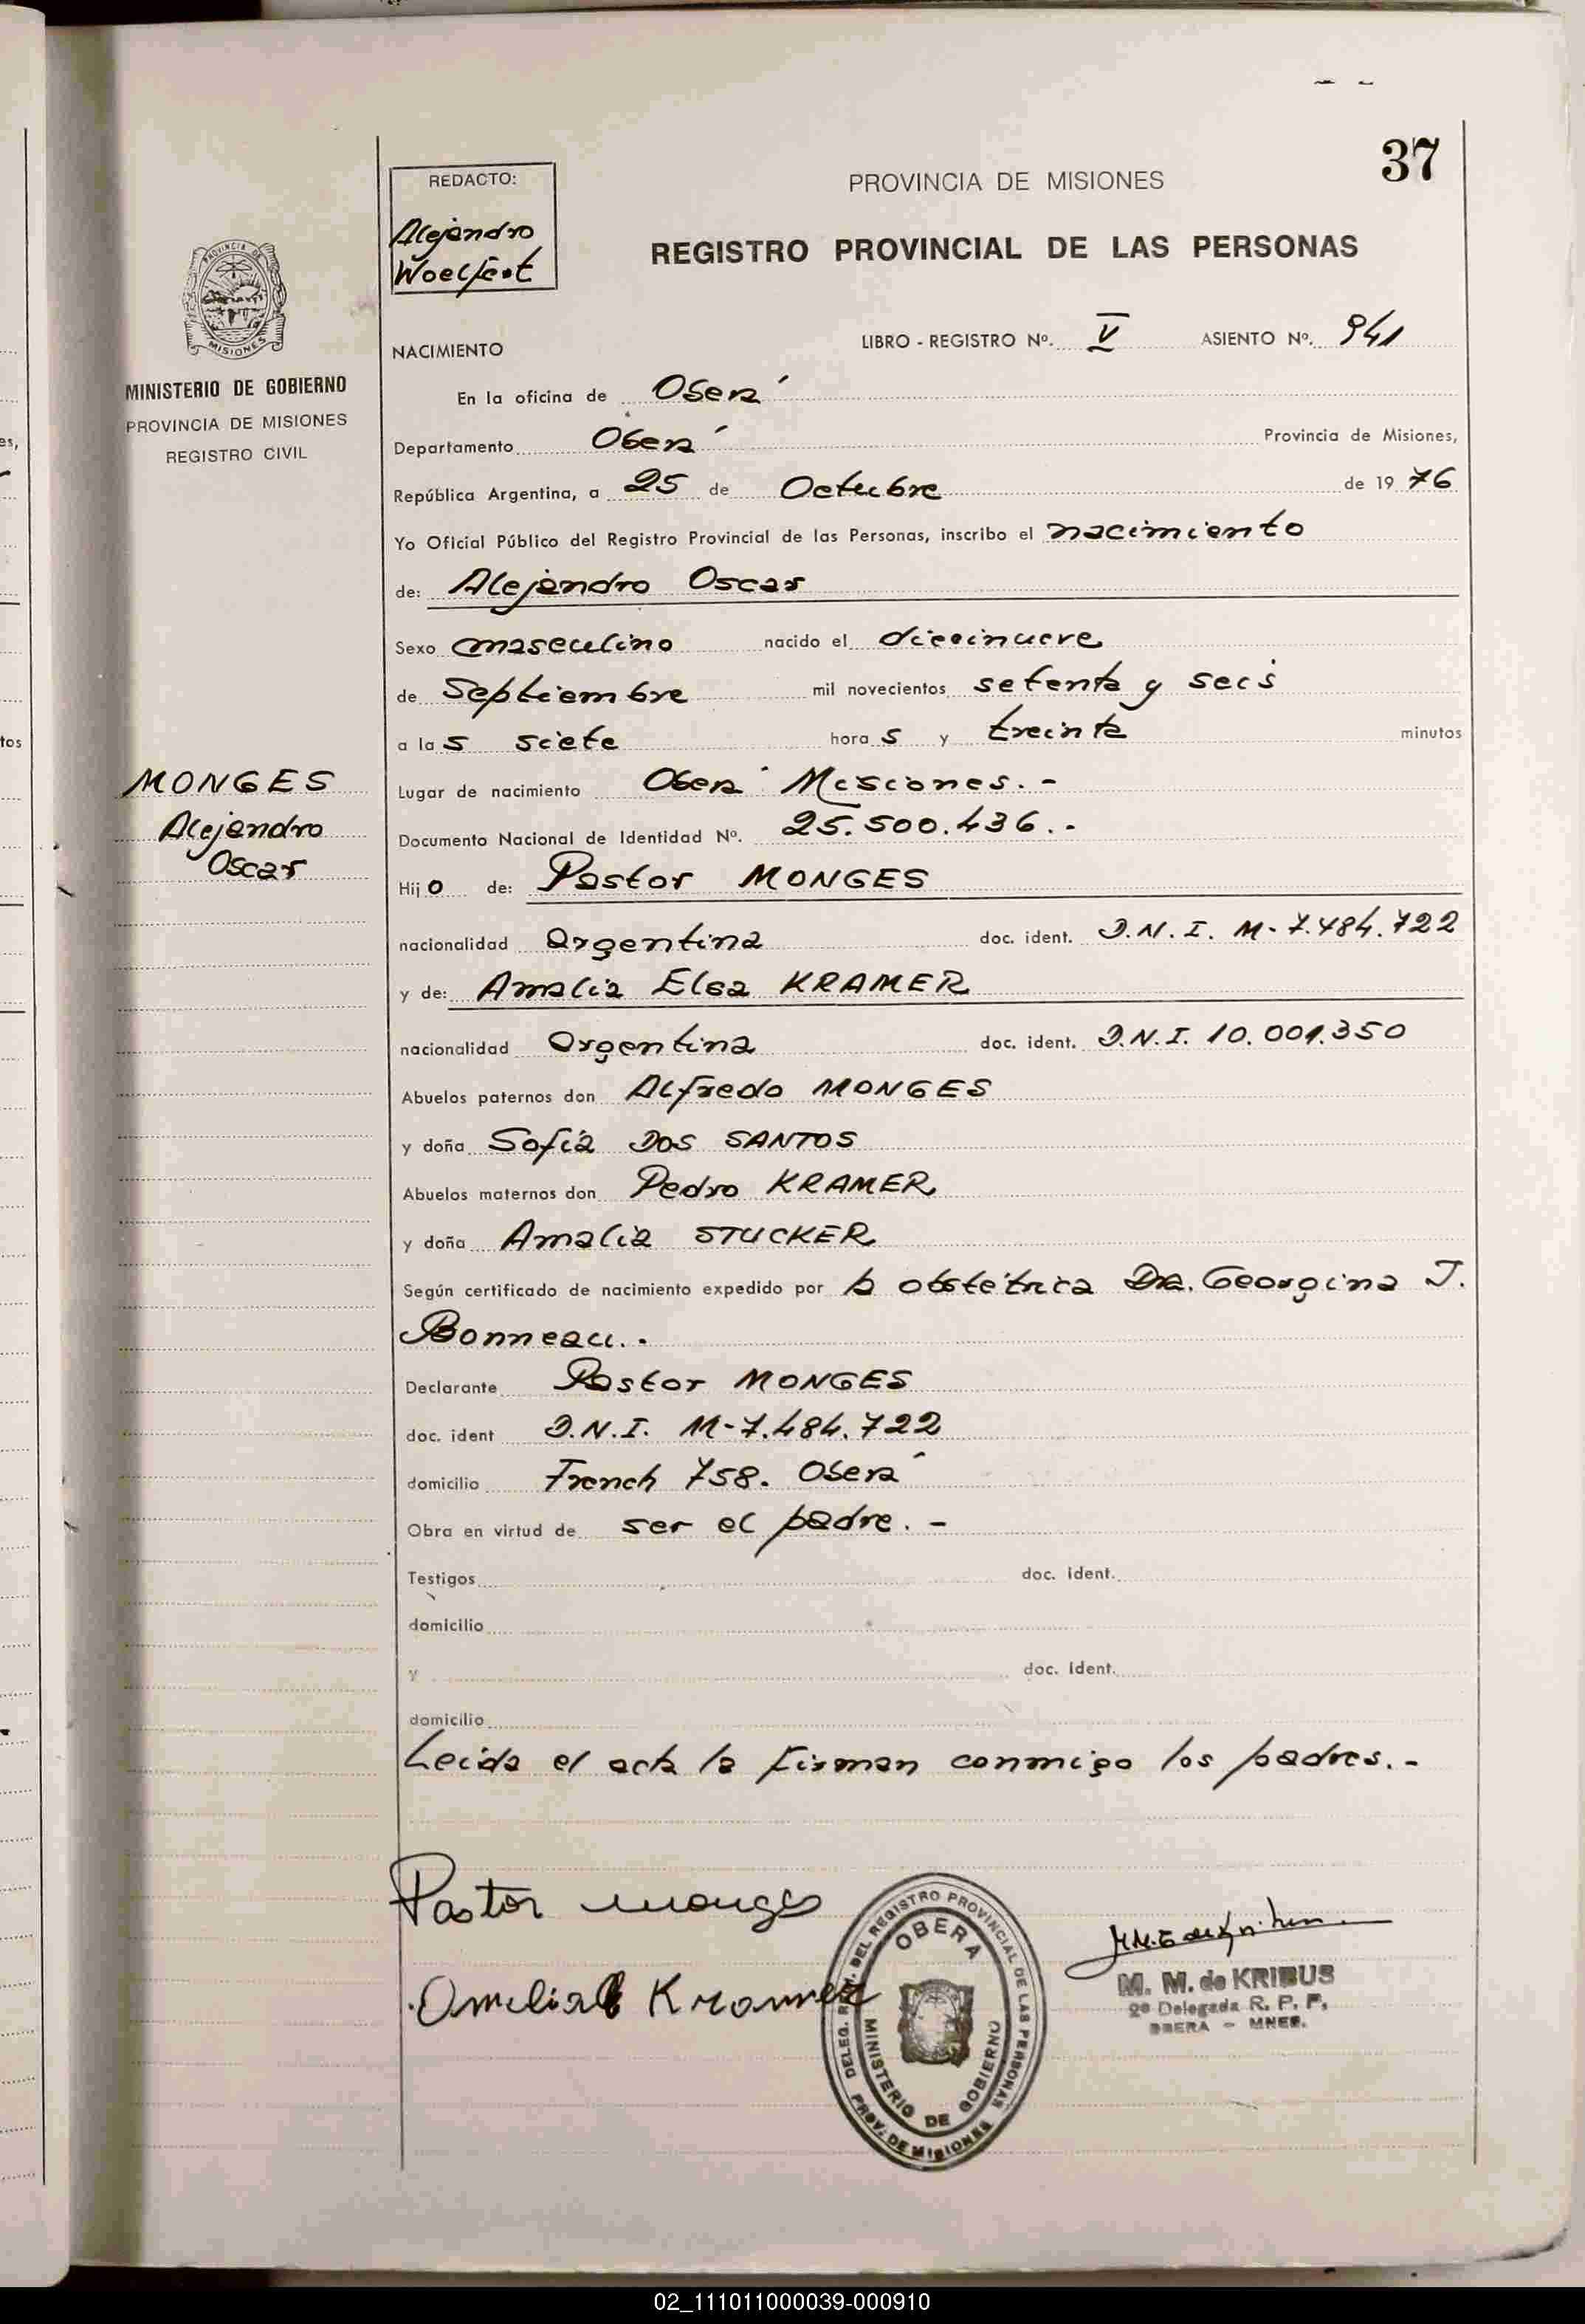 37
REDACTO:
Alejandro
Woelfert
PROVINCIA DE MISIONES
REGISTRO PROVINCIAL DE LAS PERSONAS
PROVINCIA DE
MISIONES
MINISTERIO DE GOBIERNO
PROVINCIA DE MISIONES
REGISTRO CIVIL
NACIMIENTO
LIBRO - REGISTRO Nº. V ASIENTO Nº. 941
En la oficina de Oberá
Departamento Oberá Provincia de Misiones,
República Argentina, a 25 de Octubre de 1976
Yo Oficial Público del Registro Provincial de las Personas, inscribo el nacimiento
de: Alejandro Oscar
Sexo masculino nacido el diecinueve
de Septiembre mil novecientos setenta y seis
a las siete horas y treinta minutos
Lugar de nacimiento Oberá Misiones.-
MONGES
Alejandro
Oscar
Documento Nacional de Identidad Nº. 25.500.436.-
Hijo de: Pastor MONGES
nacionalidad Argentina doc. ident. D.N.I. M-7.484.722
y de: Amalia Elsa KRAMER
nacionalidad Argentina doc. ident. D.N.I. 10.001.350
Abuelos paternos don Alfredo MONGES
y doña Sofía DOS SANTOS
Abuelos maternos don Pedro KRAMER
y doña Amalia STUCKER
Según certificado de nacimiento expedido por la obstétrica Dra. Georgina J.
Bonneau.-
Declarante Pastor MONGES
doc. ident D.N.I. M-7.484.722
domicilio French 758. Oberá
Obra en virtud de ser el padre.-
Testigos doc. ident.
domicilio
y doc. ident.
domicilio
Leída el acta la firman conmigo los padres.-
Pastor Monges
Amelia Kramer
DEL REGISTRO PROVINCIAL DE LAS PERSONAS
OBERA
MINISTERIO DE GOBIERNO
PROV. DE MISIONES
M. M. de KRIBUS
2º Delegada R. P. P.
OBERA - MNES.
02_111011000039-000910